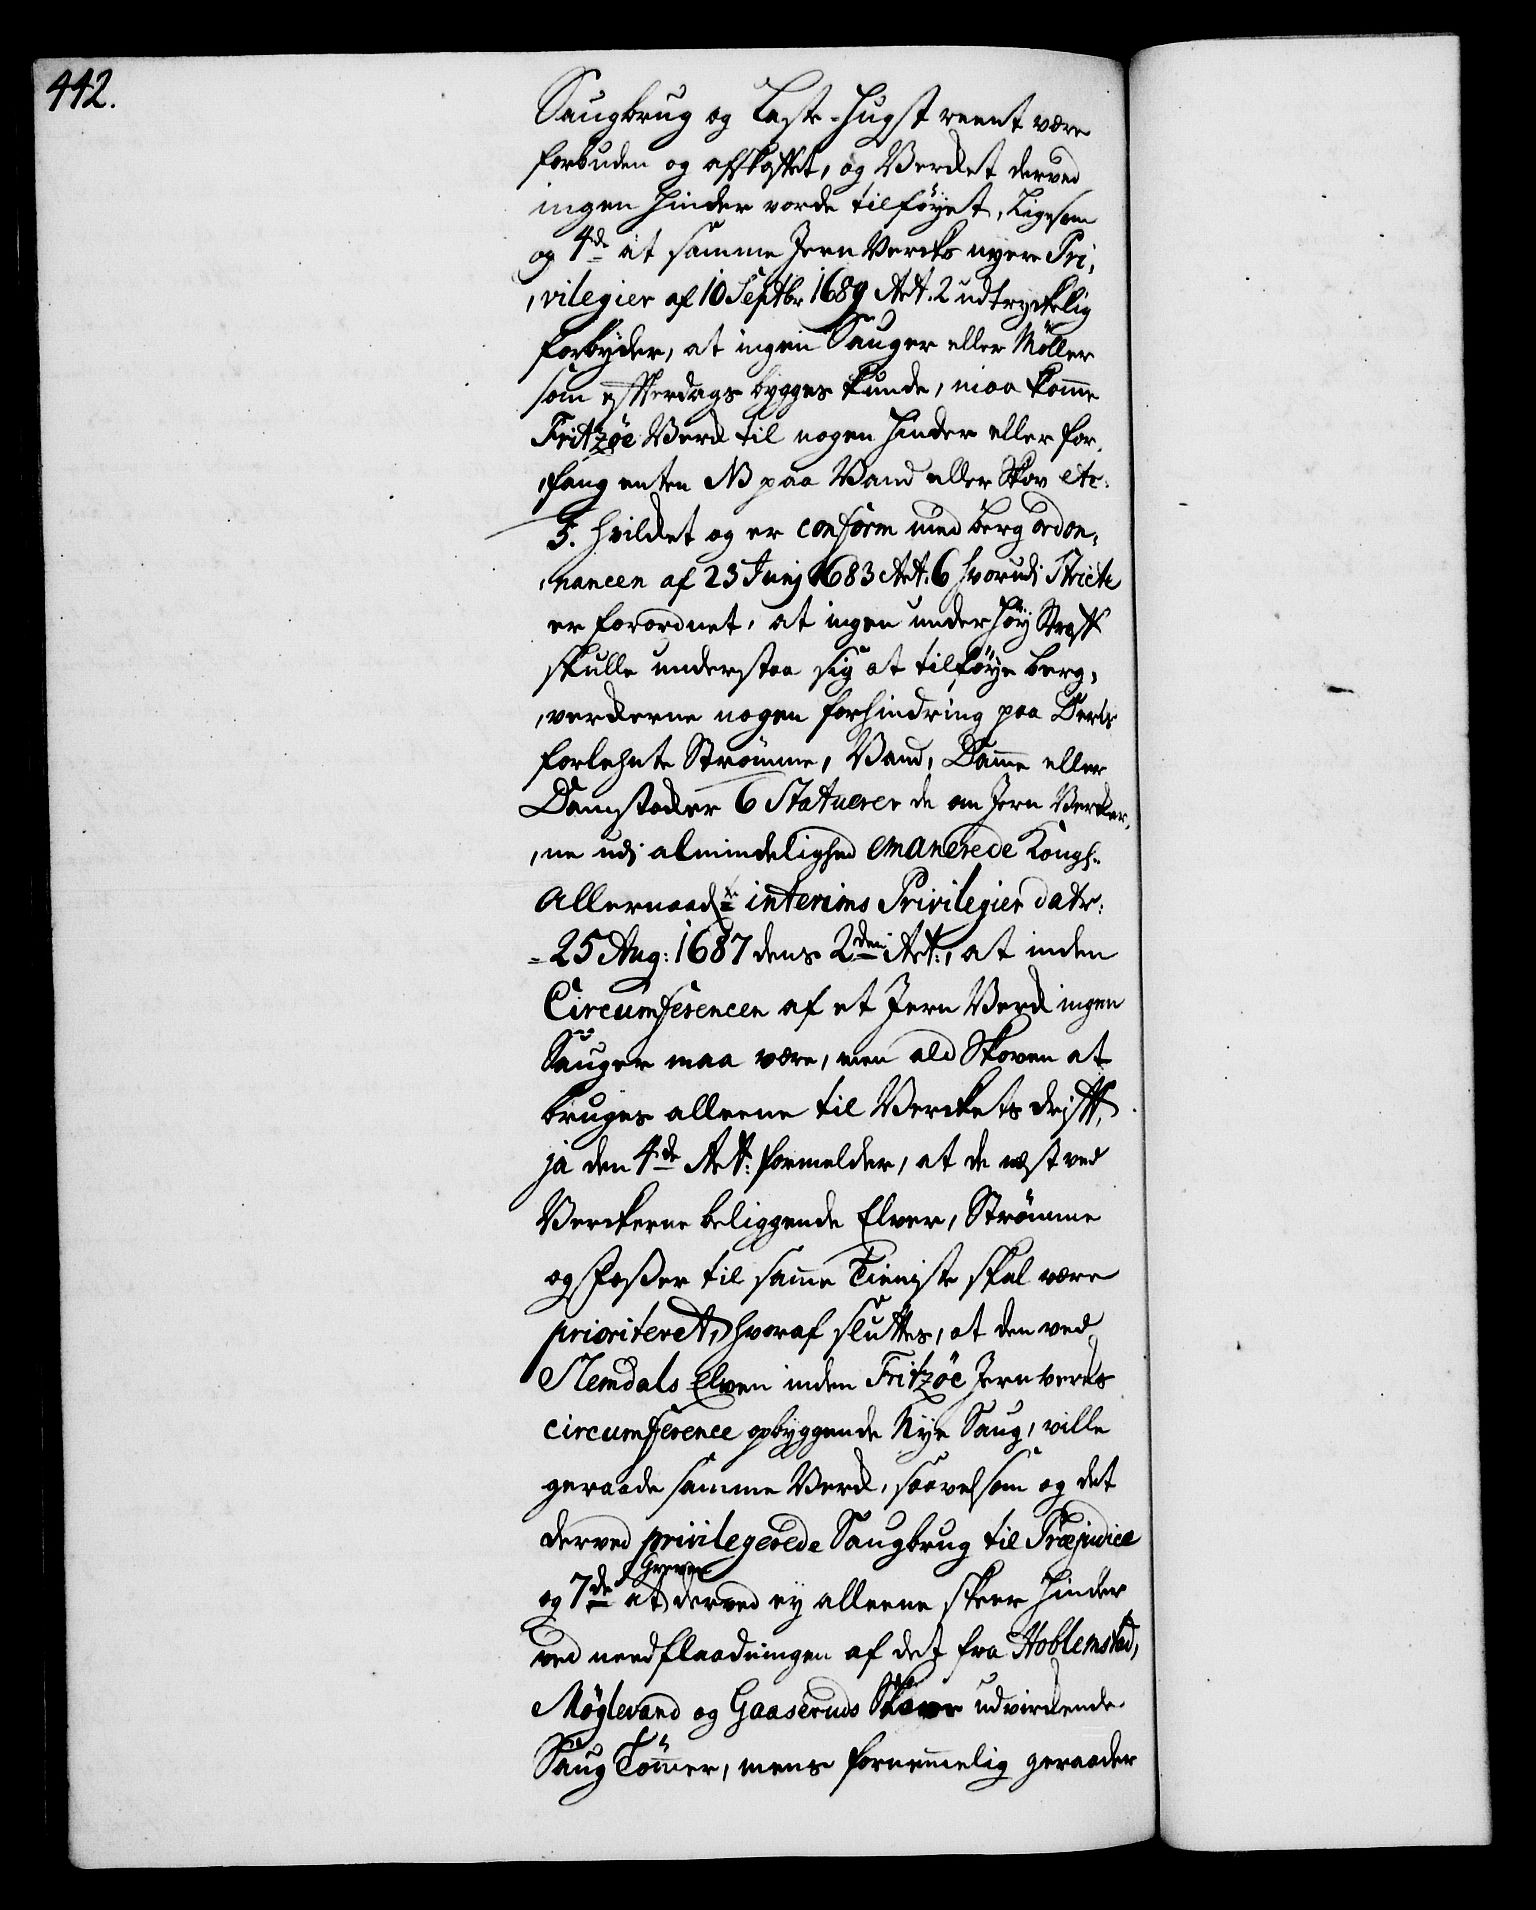 442.
Saugbrug og Last-Hugst reent være
forbuden og afskaffet, og Vercket derved
ingen Hinder vorde tilföyet, Ligesom
og 4de at samme Jern Vercks nyere Pri,
,vilegier af 10 Septbr 1689 Art. 2 udtryckelig
forbyder, at ingen Sauger eller Möller
som efterdags bygges kunde, maa komme
Fritzøe Verck til nogen Hinder eller for,
,fang enten NB paa Vand eller Skov etc:
5. Hvilcket og er conform med berg ordon,
,nancen af 23 Junj 1683 Art. 6 hvorudi Stricte
er forordnet, at ingen under höy Straff
skulle understaa sig at tilföye berg,
,verckerne nogen forhindring paa Deres
forlehnte Strømme, Vand, Damme eller
Damstæder 6 Statuerer de om Jern Vercker,
,ne udi almindelighed emanerede Kongl.
Allernaadste interims Privilegier datr:
25 Aug: 1687 dens 2den Art:, at inden
Circumferencen af et Jern Verck ingen
Sauger maa være, men ald Skoven at
bruges alleene til Verckets drift,
ja den 4de Art: formelder, at de næst ved
Verckerne beliggende Elver, Strømme
og Fosser til samme Tieniste skal være
prioriteret, hvoraf sluttes, at den ved
Slemdals Elven inden Fritzøe Jernvercks
circumference opbyggende Nye Saug, ville
geraade samme Verck, saavelsom og det
derved privilegerede Saugbrug til Præjudice
og 7de at Greven derved ey alleene skeer Hinder
ved needflaadningen af det fra Hoblemstad,
Møglevand og Gaaseruds Skove udvirckende
Saug Tömmer, mens fornemmelig geraader